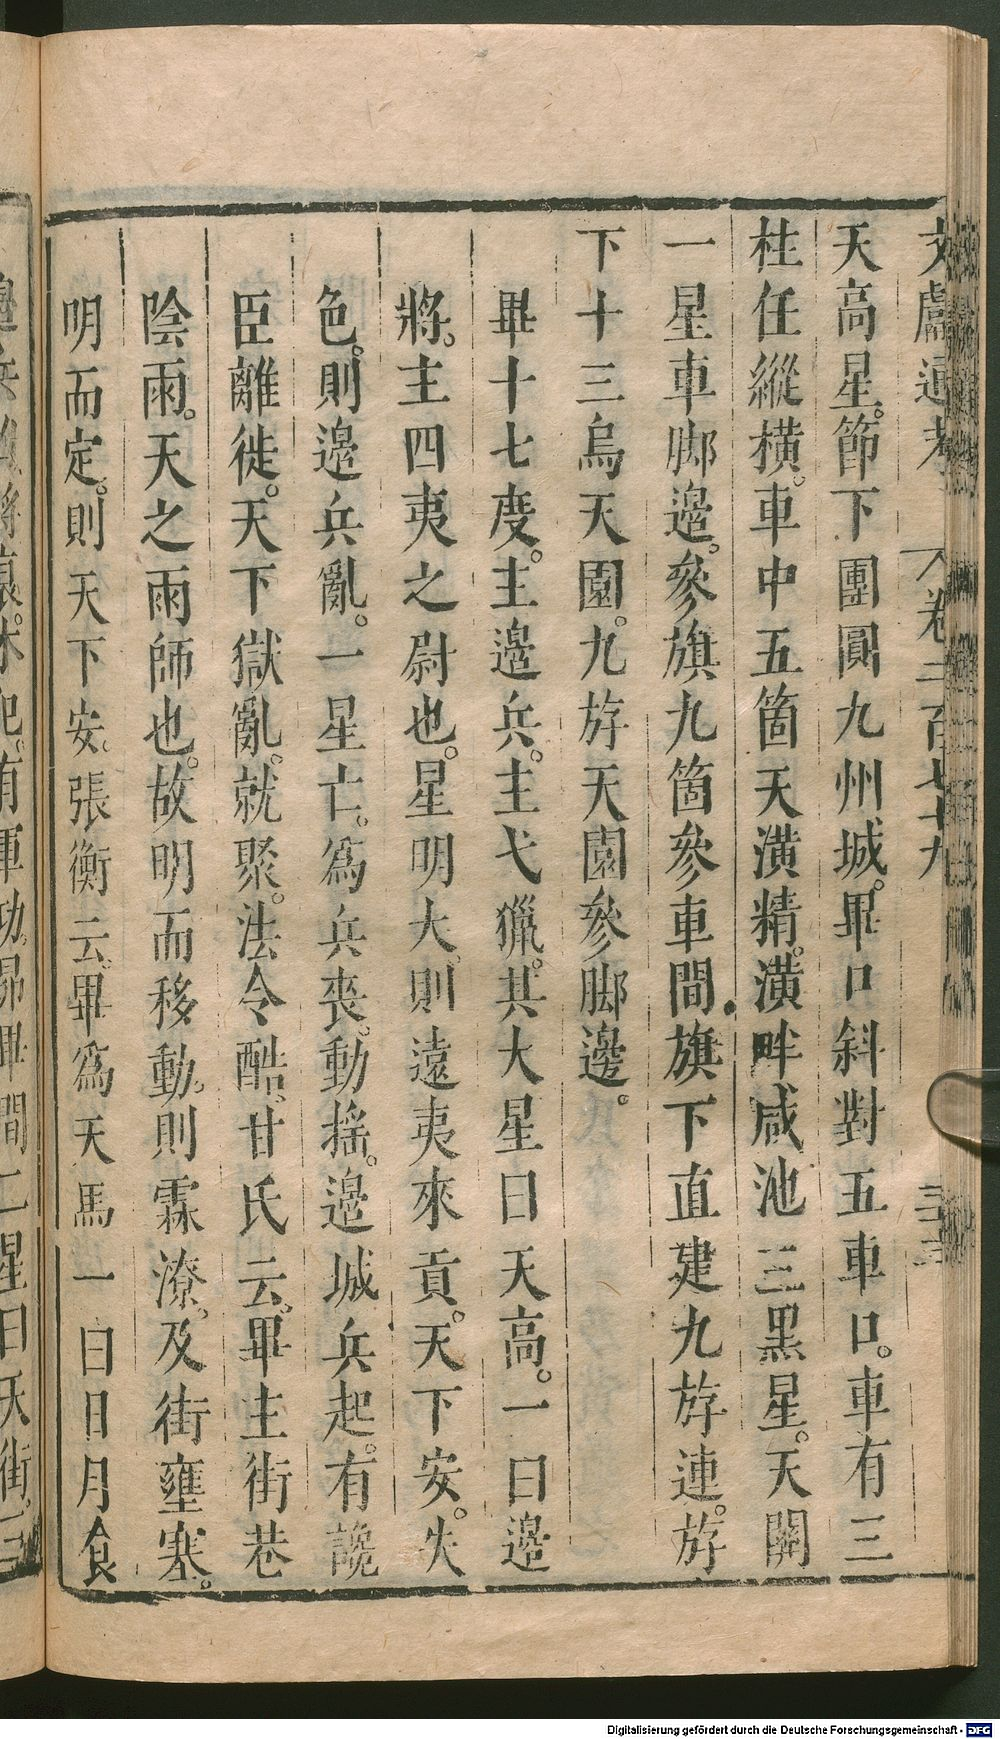 文獻通考 卷二百七十九 三十三
天高星。節下團圓九州城。畢口斜對五車口。車有三
柱任縱橫。車中五箇天潢精。潢畔咸池三黑星。天關
一星車脚邊。參旗九箇參車間。旗下直建九斿連。斿
下十三烏天園。九斿天園參脚邊。
畢十七度。主邊兵。主弋獵。其大星曰天高。一曰邊
將。主四夷之尉也。星明大。則遠夷來貢。天下安。失
色。則邊兵亂。一星亡。爲兵喪。動揺。邊城兵起。有讒
臣離徙。天下獄亂。就聚。法令酷。甘氏云。畢主街巷
陰雨。天之雨師也。故明而移動。則霖潦。及街壅塞。
明而定。則天下安。張衡云。畢爲天馬 一曰日月食
有軍功。昴畢間二星曰天街。三
Digitalisierung gefördert durch die Deutsche Forschungsgemeinschaft - DFG